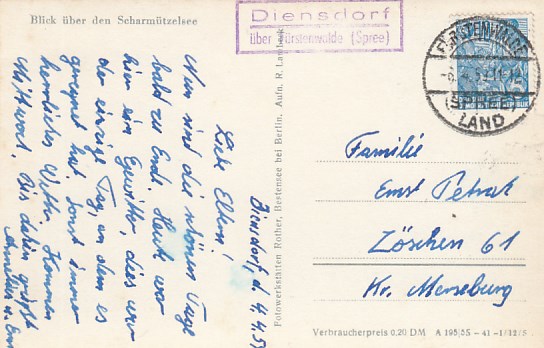 Blick über den Scharmützelsee
Diensdorf
über Fürstenwalde (Spree)
FÜRSTENWALDE
(SPREE)
LAND
Diensdorf, d. 4.4.
Liebe Eltern!
Nun sind die schönen Tage
bald zu Ende. Heute war
hier ein Gewitter, dies war
der einzige Tag, an dem es
geregnet hat, sonst immer
herrliches Wetter. Kommen
Mittwoch. Bis dahin grüßt
Fotowerkstätten Rother, Bestensee bei Berlin, Aufn. R.
Familie
Ernst Petrat
Zöschen 61
Kr. Merseburg
Verbraucherpreis 0,20 DM A 195/55 - 41 - 1/12/5